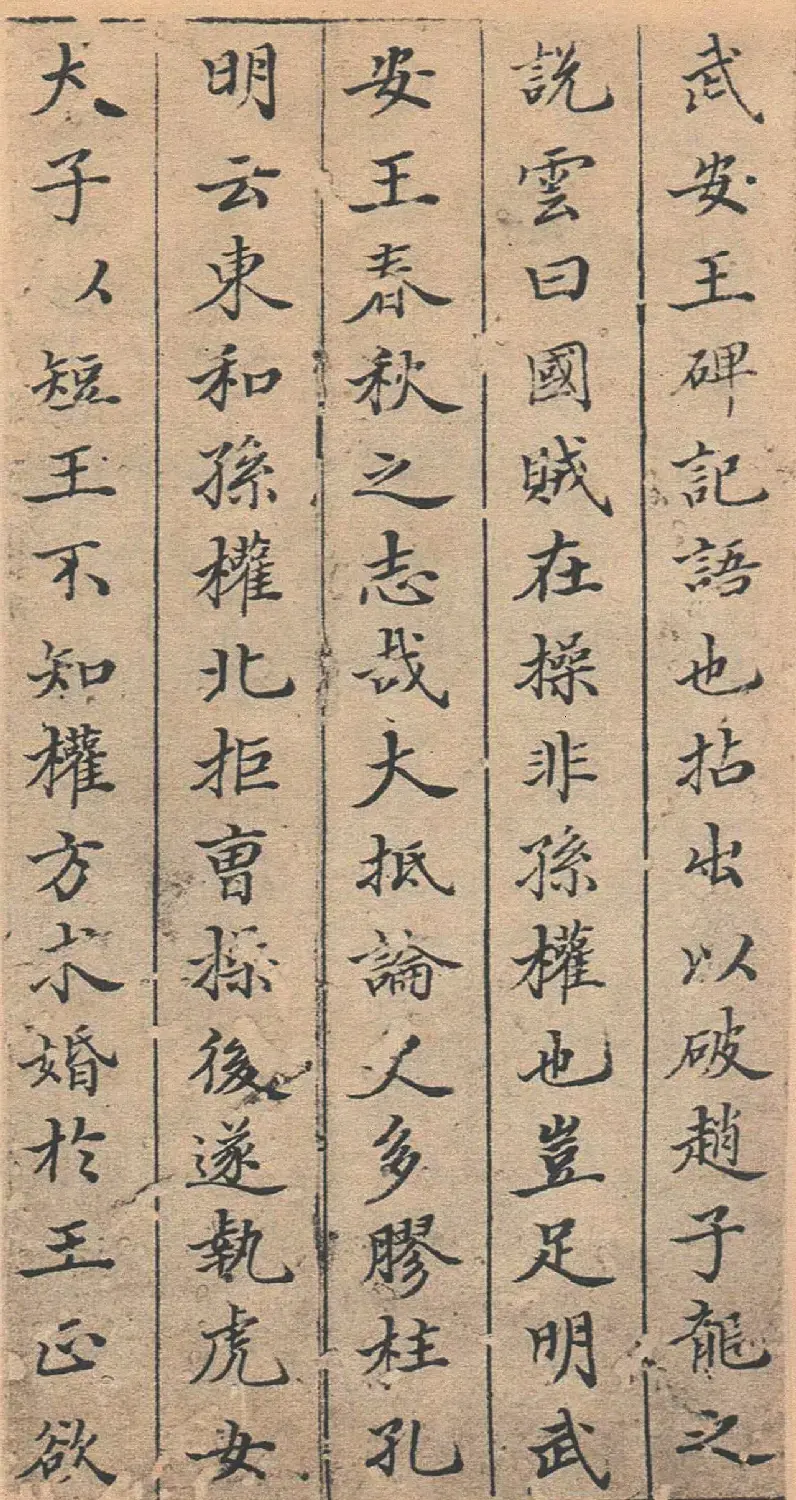 武安王碑記語也拈出以破趙子龍之
說雲曰國賊在操非孫權也豈足明武
安王春秋之志哉大抵論人多膠柱孔
明云東和孫權北拒曺操後遂執虎女
犬子以短王不知權方求婚於王正欲